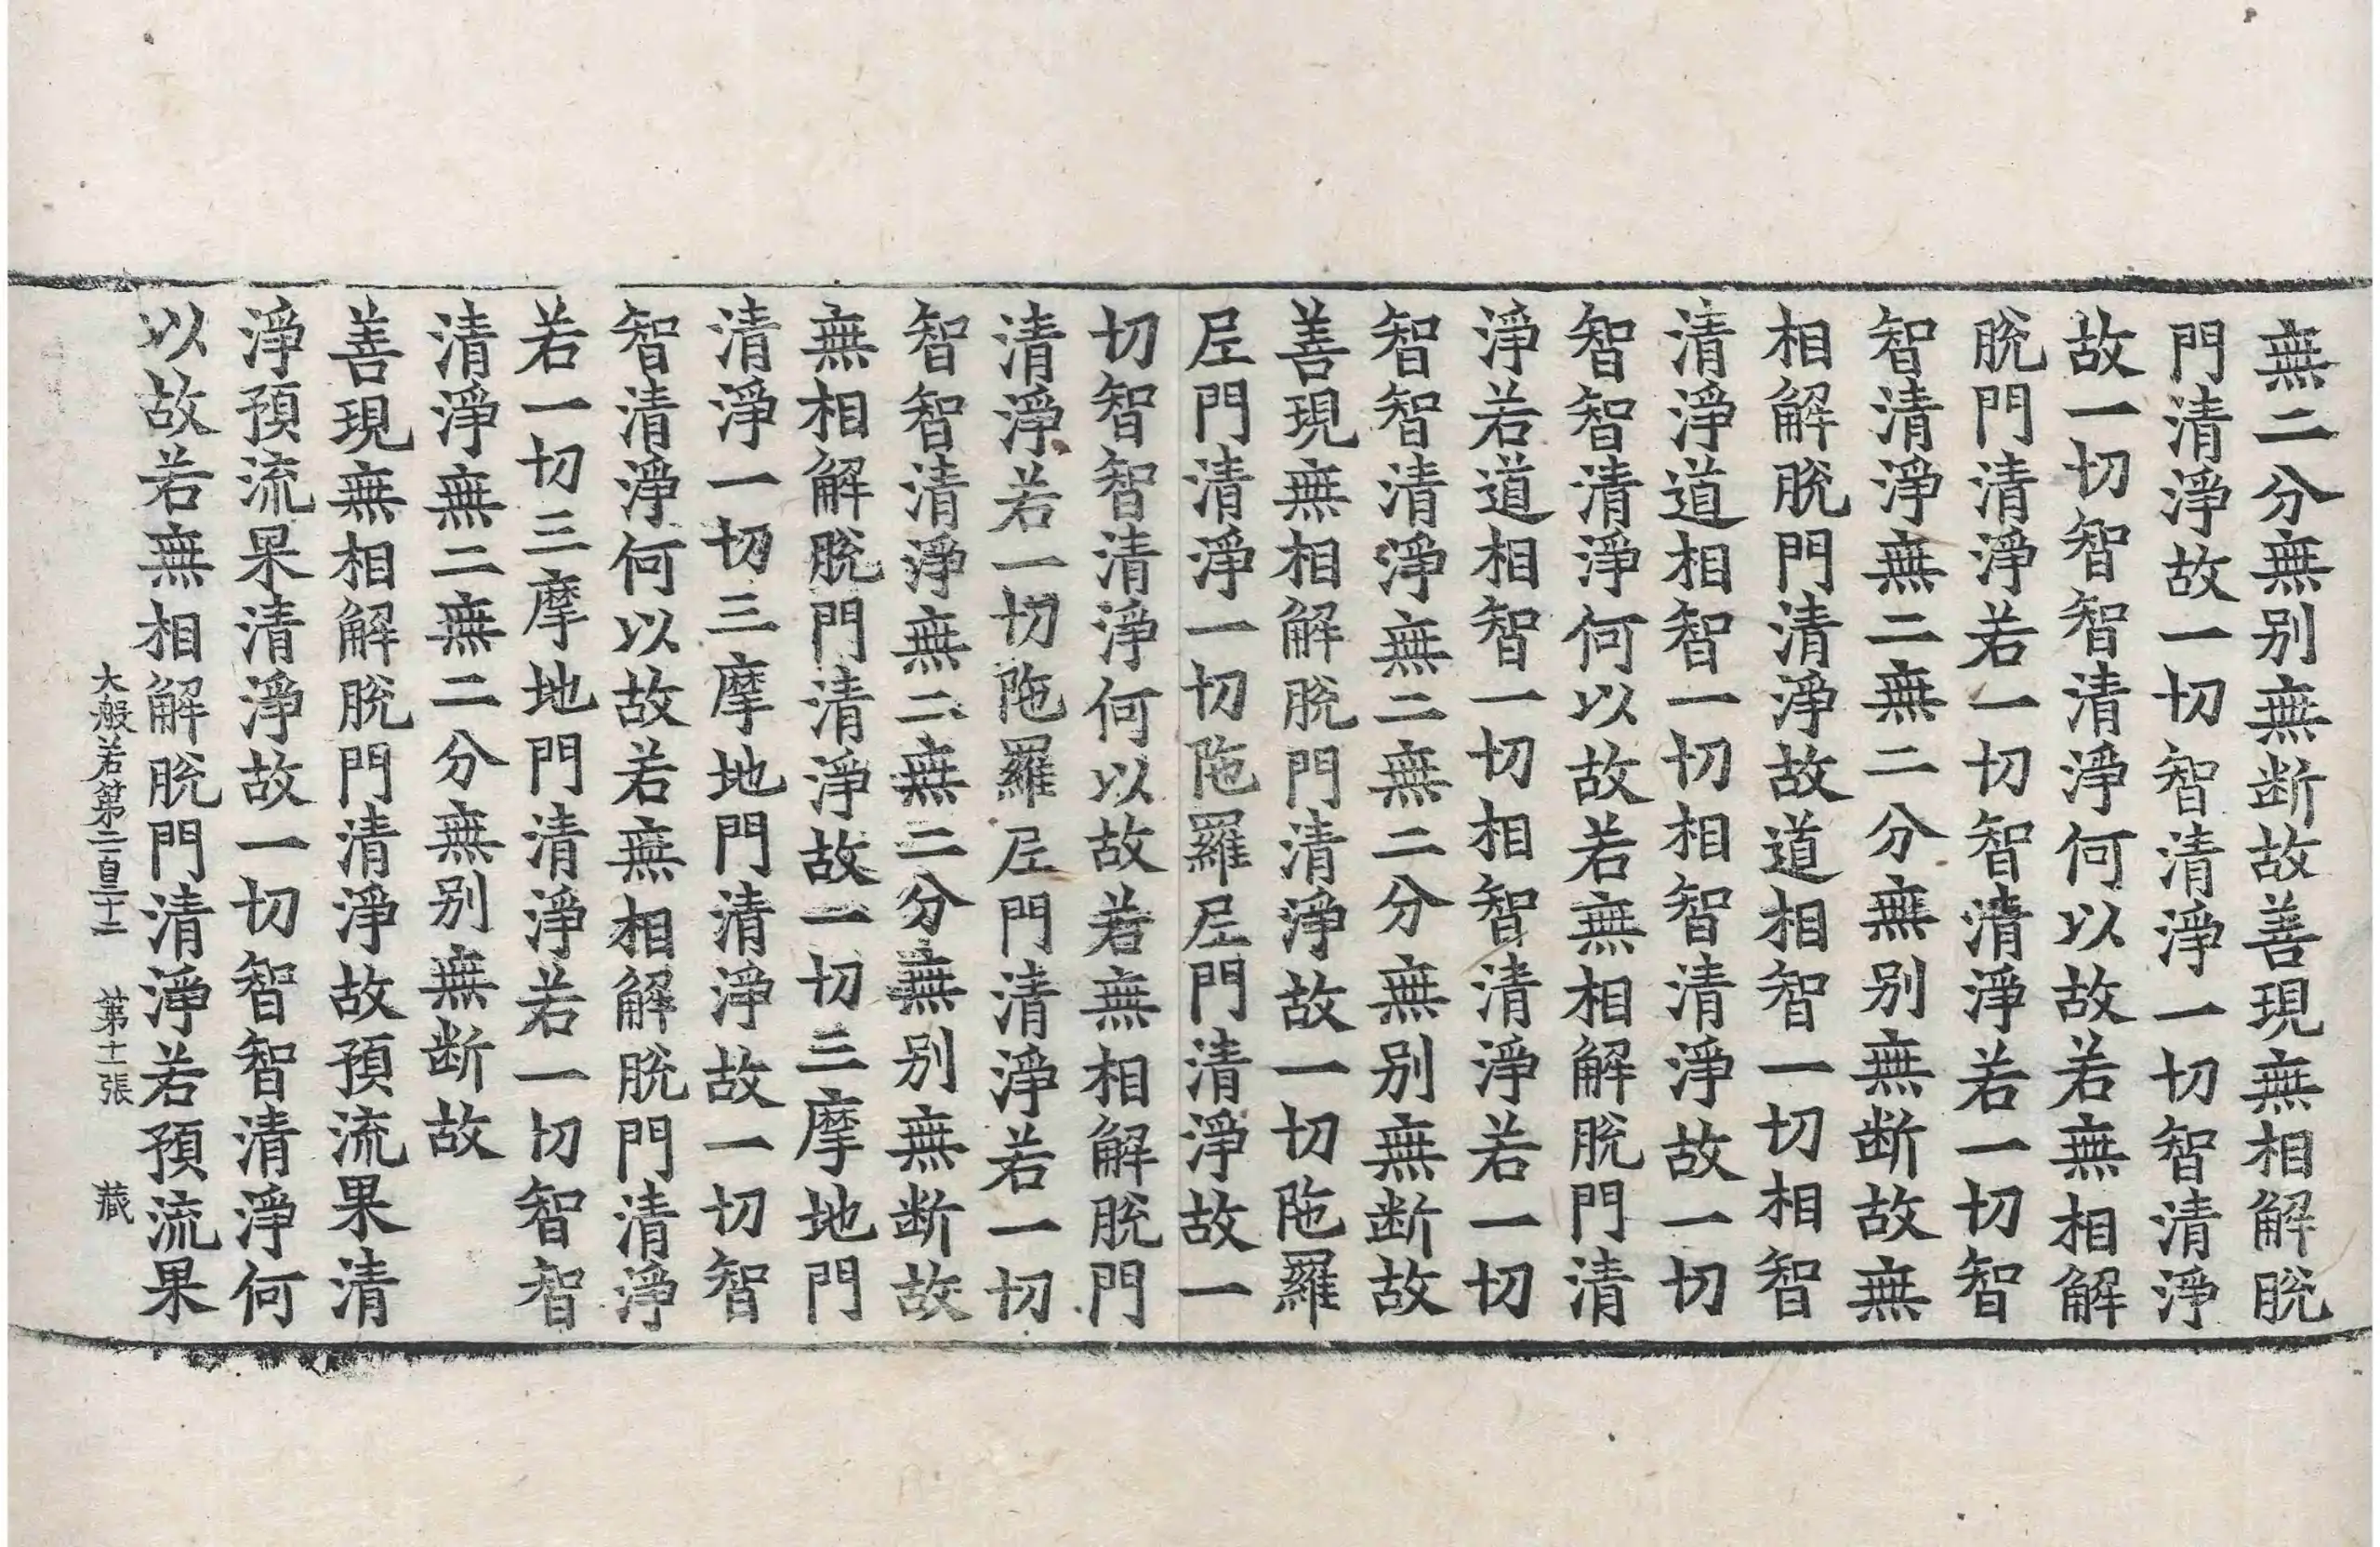 無二分無别無断故善現無相解脫
門清淨故一切智清淨一切智清淨
故一切智智清淨何以故若無相解
脫門清淨若一切智清淨若一切智
智清淨無二無二分無别無断故無
相解脫門清淨故道相智一切相智
清淨道相智一切相智清淨故一切
智智清淨何以故若無相解脫門清
淨若道相智一切相智清淨若一切
智智清淨無二無二分無别無断故
善現無相解脫門清淨故一切陁羅
㞐門清淨一切陁羅㞐門清淨故一
切智智清淨何以故若無相解脫門
清淨若一切陁羅㞐門清淨若一切
智智清淨無二無二分無别無断故
無相解脫門清淨故一切三摩地門
清淨一切三摩地門清淨故一切智
智清淨何以故若無相解脫門清淨
若一切三摩地門清淨若一切智智
清淨無二無二分無别無断故
善現無相解脫門清淨故預流果清
淨預流果清淨故一切智智清淨何
以故若無相解脫門清淨若預流果
大般若第二百三十二 第十一張 藏